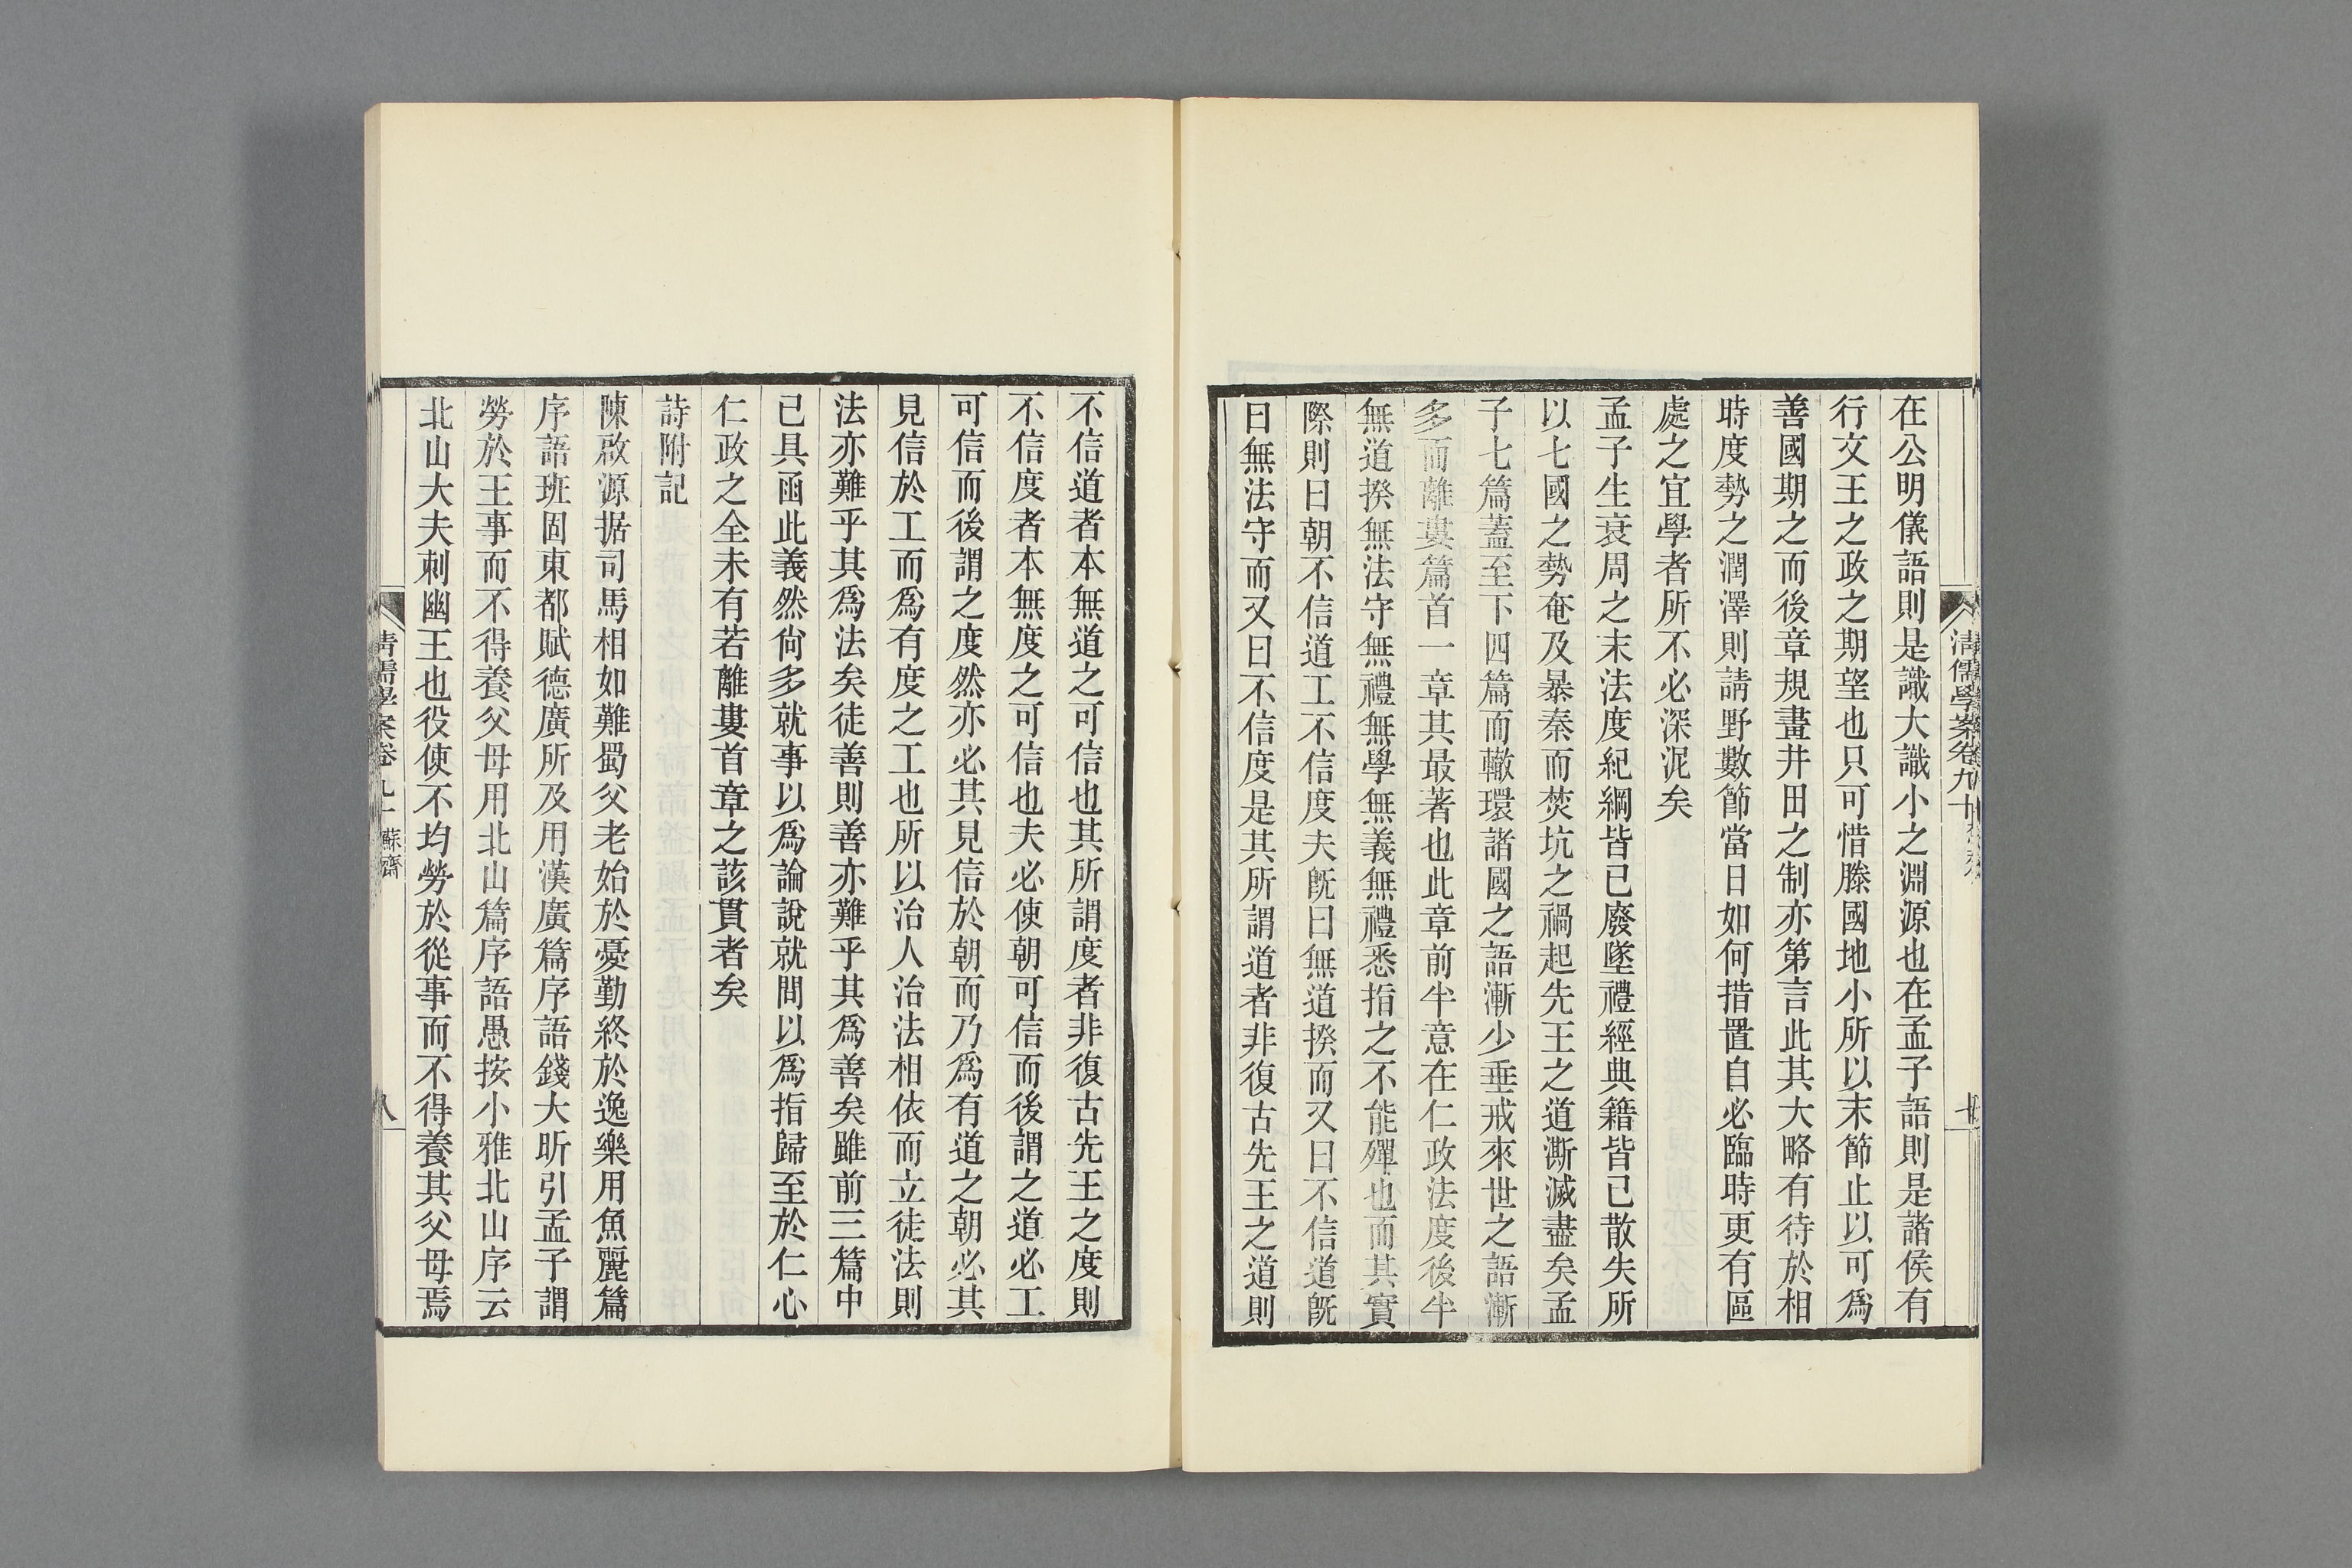 在公明儀語則是識大識小之淵源也在孟子語則是諸侯有
行文王之政之期望也只可惜滕國地小所以末節止以可爲
善國期之而後章規畫井田之制亦第言此其大略有待於相
時度勢之潤澤則請野數節當日如何措置自必臨時更有區
處之宜學者所不必深泥矣
孟子生衰周之末法度紀綱皆已廢墜禮經典籍皆已散失所
以七國之勢奄及暴秦而焚坑之禍起先王之道澌滅盡矣孟
子七篇蓋至下四篇而轍環諸國之語漸少垂戒來世之語漸
多而離婁篇首一章其最著也此章前半意在仁政法度後半
無道揆無法守無禮無學無義無禮悉指之不能殫也而其實
際則曰朝不信道工不信度夫旣曰無道揆而又曰不信道旣
曰無法守而又曰不信度是其所謂道者非復古先王之道則
不信道者本無道之可信也其所謂度者非復古先王之度則
不信度者本無度之可信也夫必使朝可信而後謂之道必工
可信而後謂之度然亦必其見信於朝而乃爲有道之朝必其
見信於工而爲有度之工也所以治人治法相依而立徒法則
法亦難乎其爲法矣徒善則善亦難乎其爲善矣雖前三篇中
已具函此義然尙多就事以爲論說就問以爲指歸至於仁心
仁政之全未有若離婁首章之該貫者矣
詩附記
陳啟源据司馬相如難蜀父老始於憂勤終於逸樂用魚麗篇
序語班固東都賦德廣所及用漢廣篇序語錢大昕引孟子謂
勞於王事而不得養父母用北山篇序語愚按小雅北山序云
北山大夫刺幽王也役使不均勞於從事而不得養其父母焉
清儒學案卷九十 蘇齋
八